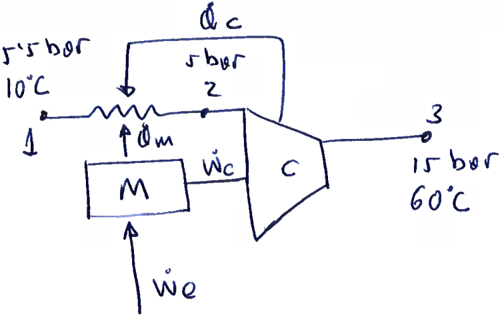 Q̇c
5'5 bar
10°C
5 bar
2
1
Q̇m
3
M
Ẇc
C
15 bar
60°C
Ẇe